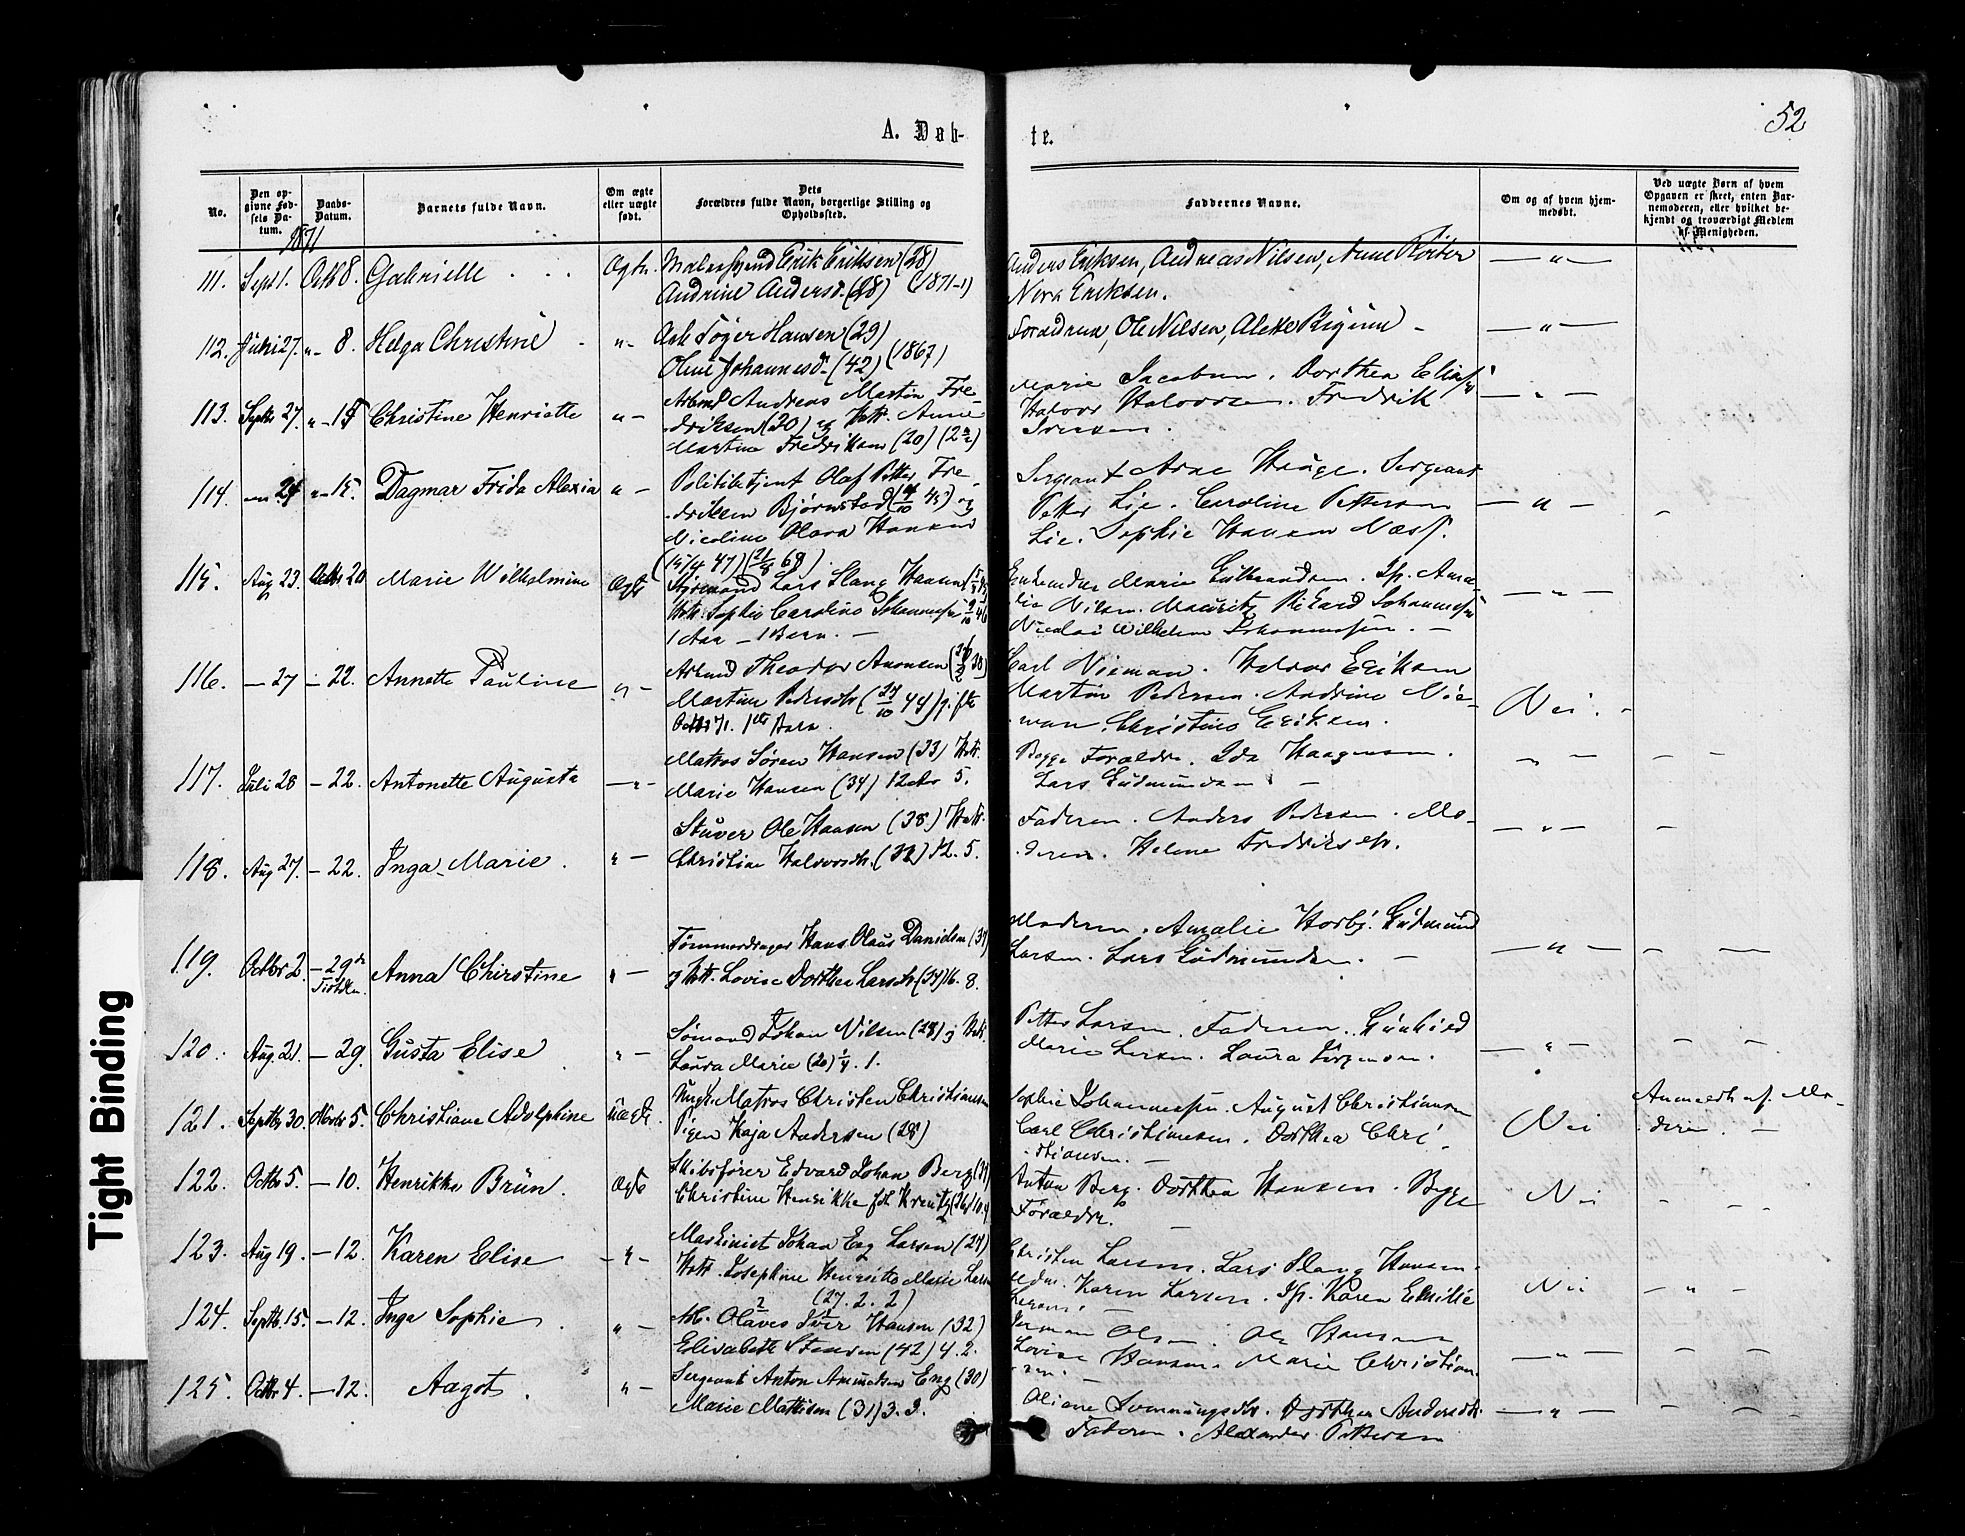 52
A. Døb-
te.
No.
Den op-
givne Fød-
sels Da-
tum.
Daabs-
Datum.
Barnets fulde Navn.
Om ægte
eller uægte
født.
Dets
Forældres fulde Navn, borgerlige Stilling og
Opholdssted.
Faddernes Navne.
Om og af hvem hjem-
medøbt.
Ved uægte Børn af hvem
Opgaven er skeet, enten Bar-
nemoderen, eller hvilket be-
kjendt og troværdigt Medlem
af Menigheden.
1871
111. Sept 1. Octb 8. Gabrielle Ægte. Erik Eriksen (28)
Andrine Andersd. (28) (1871-1)
Anders Eriksen, Andreas Nilsen, Anne
Nora Eriksen.
112. 27. " 8. Helga Christine " - Hansen (29)
Oline Johannesd. (42) (1867)
Ole Nilsen, Alette
113. Septbr 27. " - 15 Christine Henriette " - Arbmd Andreas Martin Fre-
driksen (20) og Hstr. Anne
Martine Fredriksen (20)
Marie Jacobsen. Dorthea
Halvor Halvorsen. Fredrik
Iversen.
114. - 24 " - 15. Dagmar Frida Alexia " - Politibetjent Olaf Petter Fre-
driksen Bjørnstad og
Nicoline Olava Hansen
(15/4 47) (21/8 69).
Sergeant Arne Hauge. Sergeant
Petter Lie. Caroline Pettersen
Lie. Sophie Hansen Næss.
115. Aug 23. Octbr 20 Marie Wilhelmine Ægte Styrmand Lars Slang Hansen
Hstr. Sophie Caroline Johannesen
1 Aar - 1 Barn. -
Enkemdm Marie Gulbrandsen. Jfr. Ama-
lie Nilsen. Mauritz Rikard Johannesen
Nicolai Wilhelm Johannesen. -
116. - 27 - 22. Annette Pauline " - Arbmd Theodor Amonsen
Martine Pedersdtr (27/10 44) gifte
Octbr 71. 1ste Barn
Carl Nieman. Halvor Eriksen
Martin Pedersen. Andrine Nie-
man. Christine Eriksen.
Nei. -
117. Juli 28 - 22. Antonette Augusta - " - Matros Søren Hansen (33) Hstr.
Marie Hansen (34) 12 5.
Begge Forældre. Ida Haagensen.
Lars Gudmundsen -
118. Aug 27. - 22. Inga Marie. " - Stuver Ole Hansen (38) Hstr.
Christine Halvorsdtr. (32) 12. 5.
Faderen. Anders Pedersen. Mo-
deren. Helene Fredriksen.
119. Octbr 2. - 29de Anna Christine " - Tømmerdrager Hans Olaus Danielsen (37)
og Hstr. Lovise Dorthea Larsdtr. (34) 16. 8.
Moderen. Amalie Gudmund
Larsen. Lars Gudmundsen. -
120. Aug 21. - 29. Gusta Elise. " - Sømand Johan Nilsen (28) og Hstr.
Laura Marie (20) 1.
Petter Larsen. Faderen. Gunhild
Marie Larsen. Laura Jørgensen.
121. Septbr 30. Novbr 5. Christiane Adolphine Uægte. Ungk. Matros Christen Christiansen
Pigen Kaja Andersen (28)
Sophie Johannessen. August Christiansen
Carl Christiansen. Dorthea Chri-
stiansen. -
Nei
Anmeldt af Mo-
deren. -
122. Octbr 5. - 10. Henrikke Brün. Ægte Skibsfører Edvard Johan Berg
Christine Henrikke fdt
Anton Berg. Dorthea Hansen. Begge
Forældre.
Nei
123. Aug 19. - 12. Karen Elise - " - Maskinist Johan Larsen (27)
Hstr. Josephine Henriette Marie
(27. 2. 2)
Christen Larsen. Lars Slang Hansen.
Karen Larsen. Jfr. Karen Emilie
Larsen.
Nei
124. Septbr. 15. - 12. Inga Sophie " - Olaves Iver Hansen (32)
Elisabeth (42) 4. 2.
Herman Olsen. Ole Hansen
Lovise Hansen. Marie Christian-
sen. -
125. Octbr 4. - 12. Aagot. " - Sergeant Anton Amundsen Eng (30)
Marie Mathisen (31) 3. 3.
Oliane Dorthea Andersdtr.
Faderen. Alexander Pettersen
Tight Binding